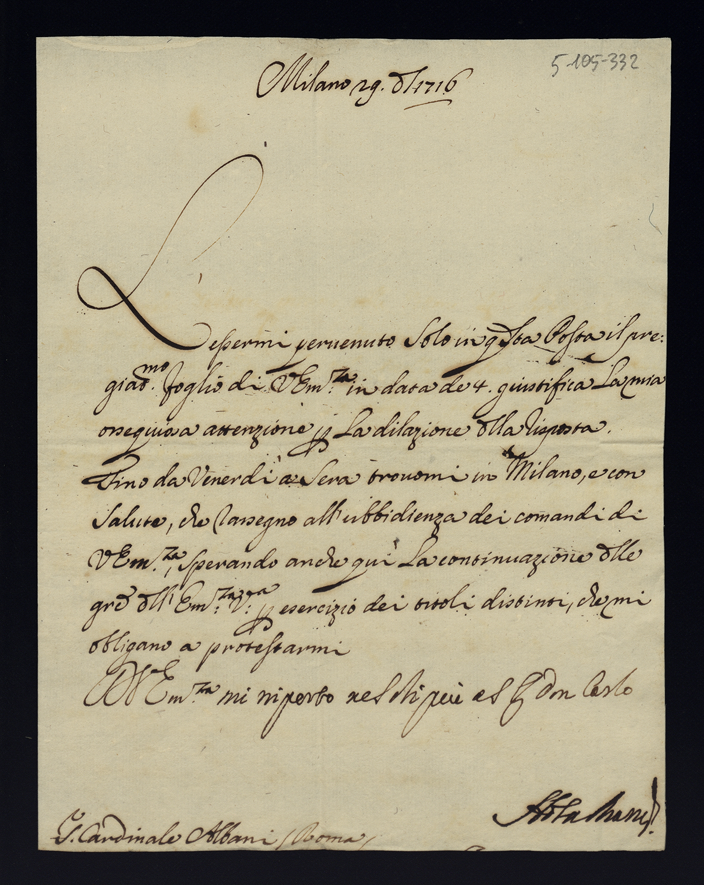 5-105-332
Milano 29. 1716
L'essermi pervenuto solo in qsta Posta il pre:
giatmo. foglio di VEm.za in data de 4. giustifica La mia
ossequiosa attenzione p La dilazione dlla risposta.
Fino da Venerdi a Sera trovomi in Milano, e con
salute, che rassegno all'ubbidienza dei comandi di
VEm.za, sperando anche qui La continuazione dlle
gre dll'Em.za V.ra p esercizio dei titoli distinti, che mi
obligano a protestarmi
VEm.za mi riporto Don Carlo
S. Cardinale Albani (Roma)